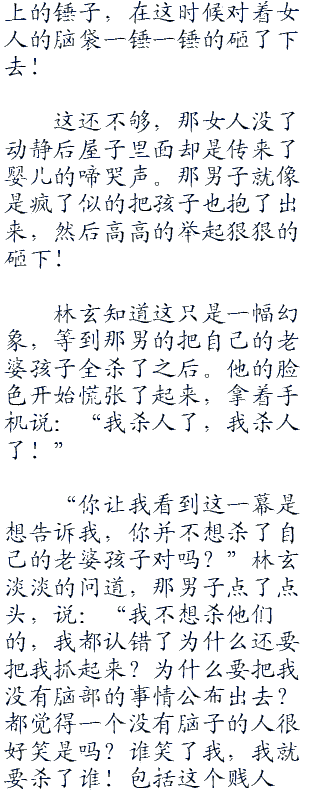 上的锤子，在这时候对着女
人的脑袋一锤一锤的砸了下
去！
这还不够，那女人没了
动静后屋子里面却是传来了
婴儿的啼哭声。那男子就像
是疯了似的把孩子也抱了出
来，然后高高的举起狠狠的
砸下！
林玄知道这只是一幅幻
象，等到那男的把自己的老
婆孩子全杀了之后。他的脸
色开始慌张了起来，拿着手
机说：“我杀人了，我杀人
了！”
“你让我看到这一幕是
想告诉我，你并不想杀了自
己的老婆孩子对吗？”林玄
淡淡的问道，那男子点了点
头，说：“我不想杀他们
的，我都认错了为什么还要
把我抓起来？为什么要把我
没有脑部的事情公布出去？
都觉得一个没有脑子的人很
好笑是吗？谁笑了我，我就
要杀了谁！包括这个贱人